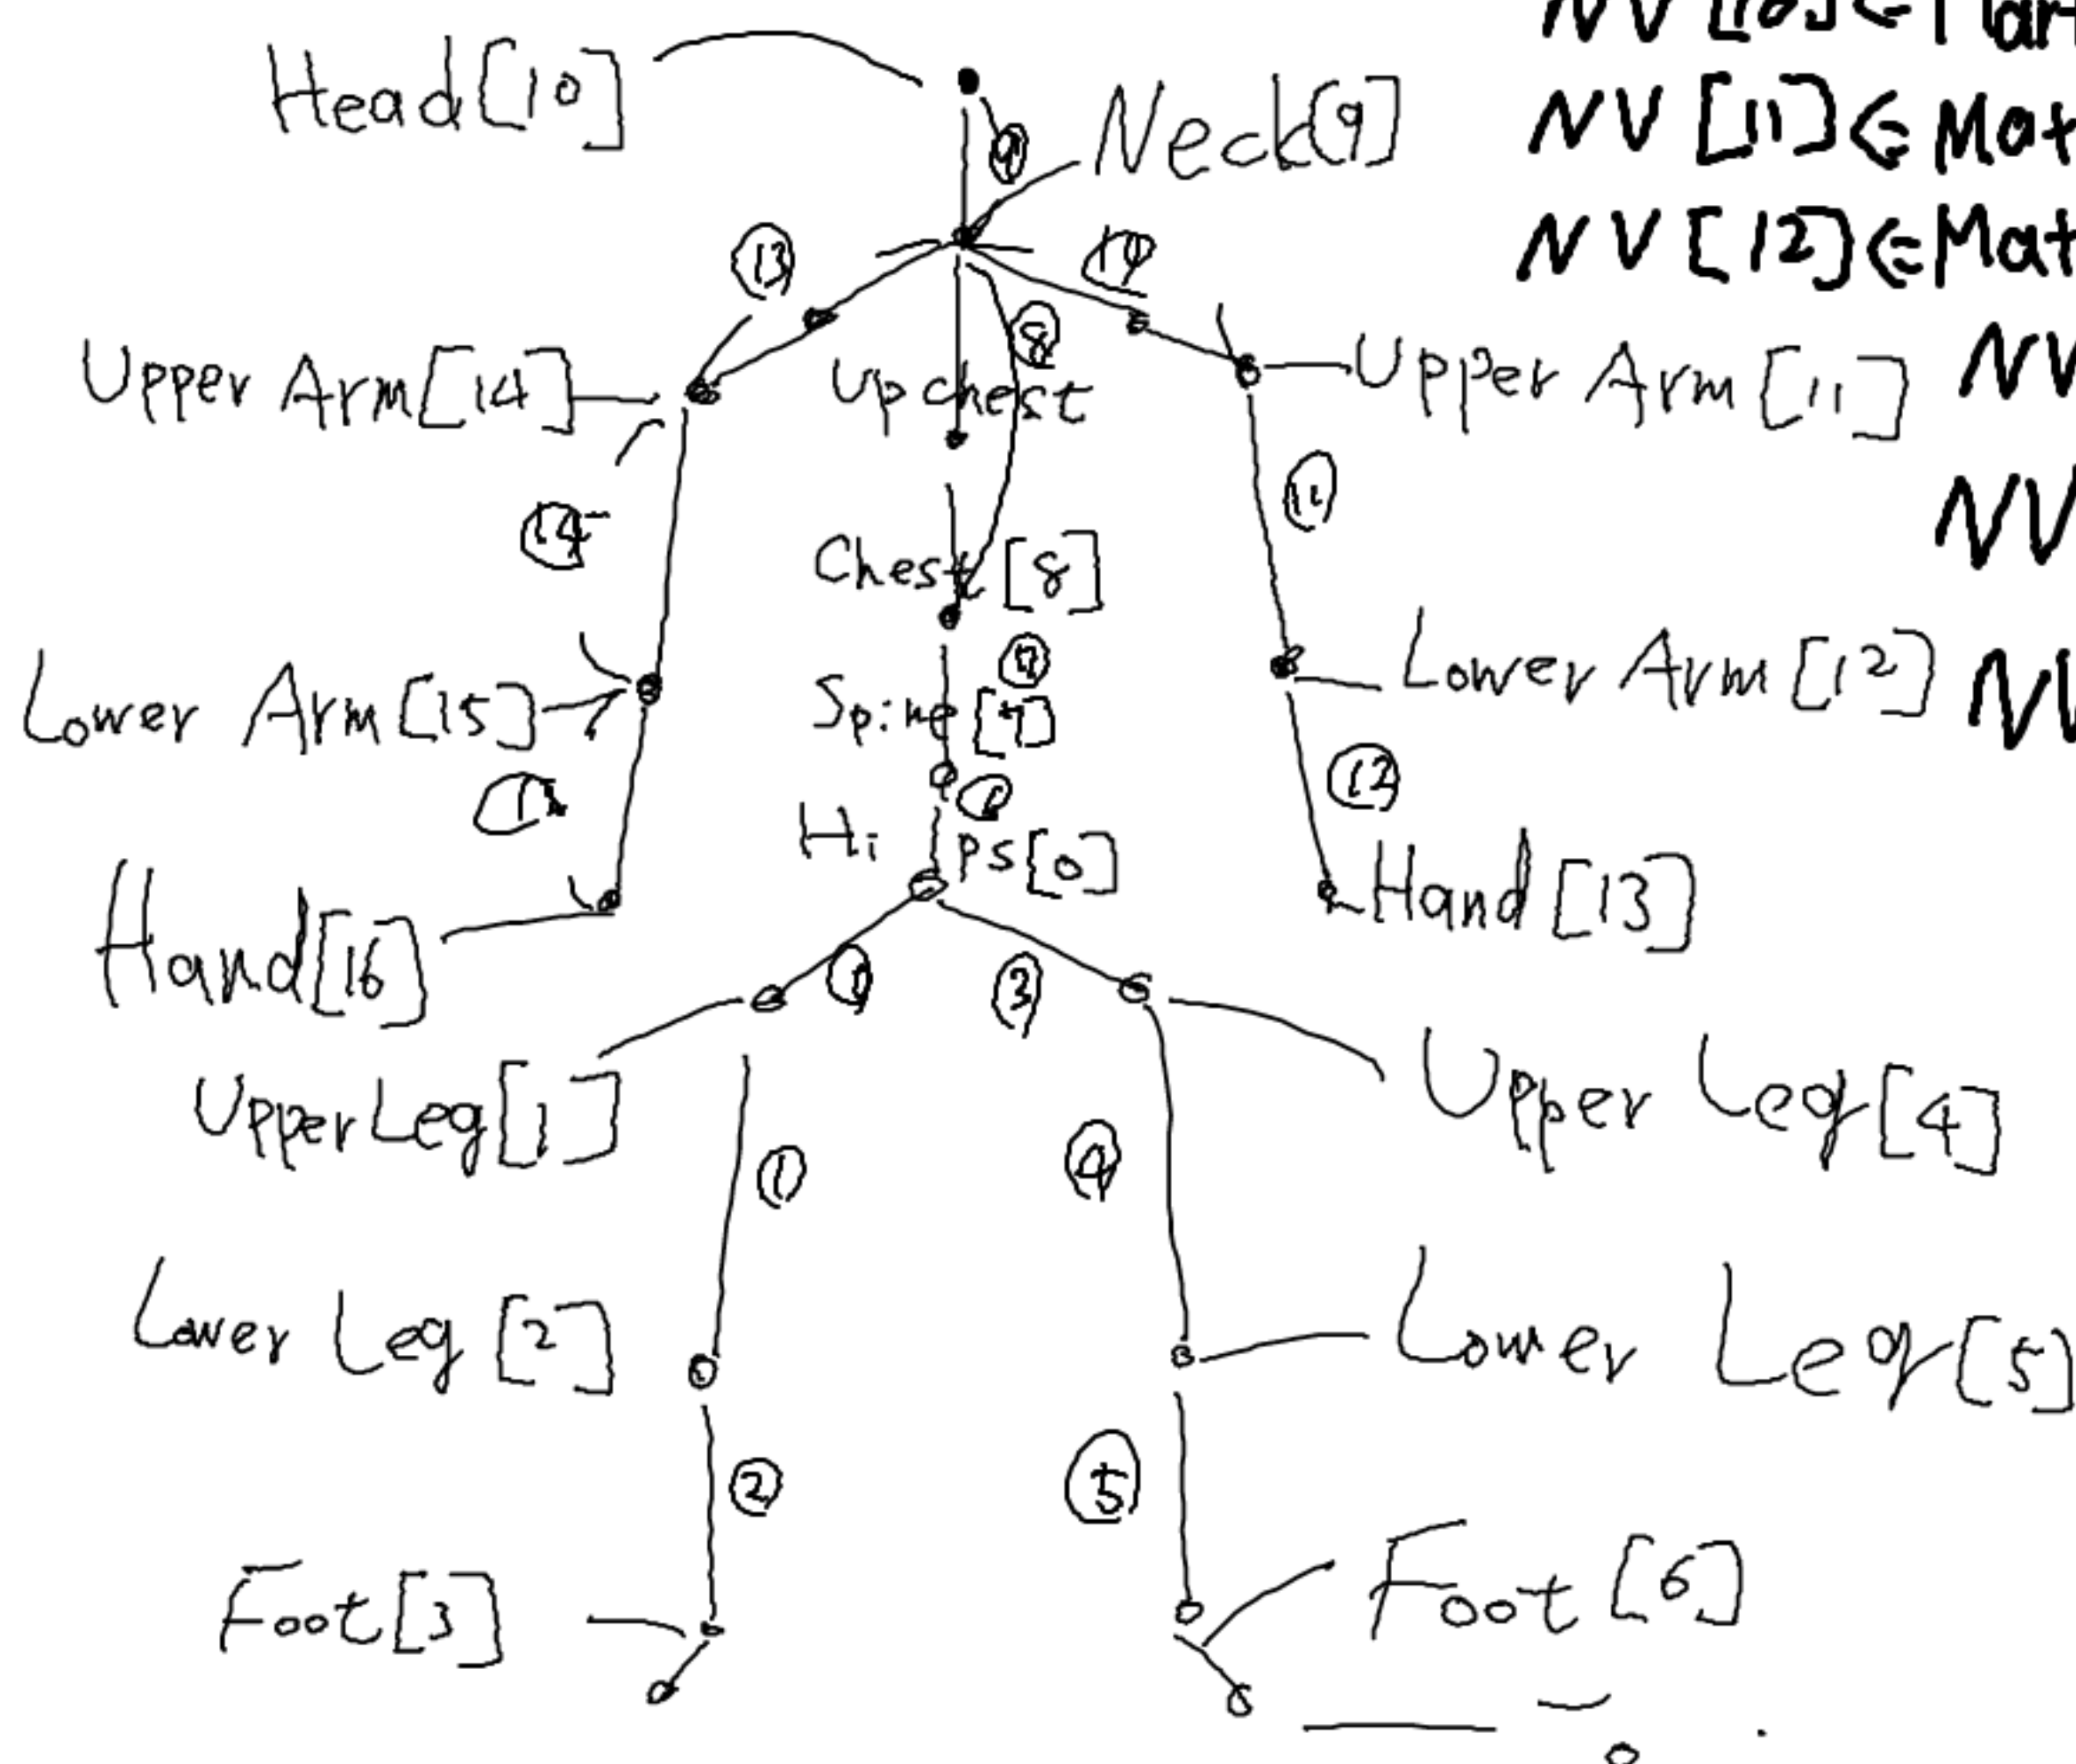 Head[10]
Neck[9]
NV[11]∈Mat
NV[12]∈Mat
⑨
⑬
⑩
⑧
NV
Upper Arm[14]
Up chest
Upper Arm[11]
⑪
NV
⑭
Chest[8]
⑦
Lower Arm[15]
Spine[7]
Lower Arm[12]
NV
⑥
⑫
Hips[0]
Hand[16]
Hand[13]
③
Upper Leg[1]
Upper Leg[4]
①
④
Lower Leg[2]
Lower Leg[5]
②
⑤
Foot[3]
Foot[6]